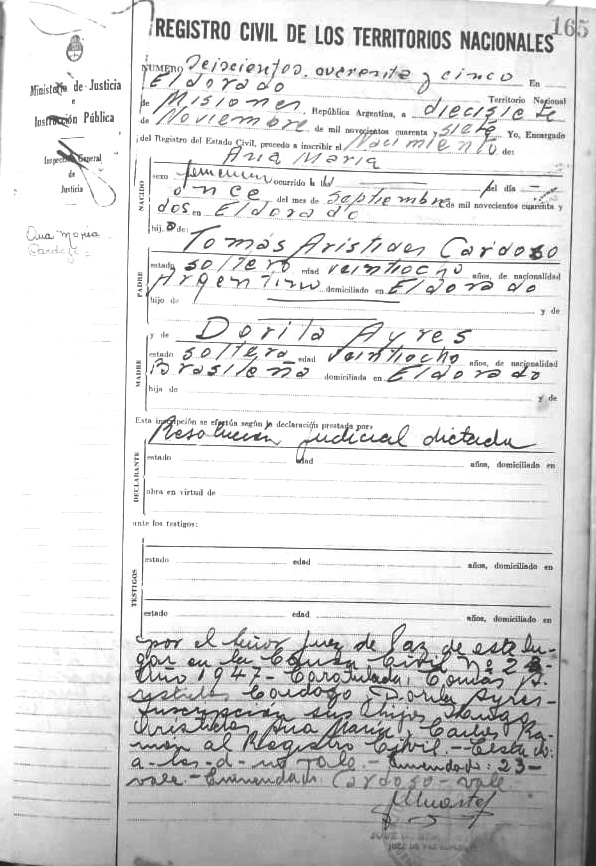 165
REGISTRO CIVIL DE LOS TERRITORIOS NACIONALES
Ministerio de Justicia
e
Instrucción Pública
Inspección General
de
Justicia
Ana Maria
Cardozo
NUMERO Seiscientos cuarenta y cinco En
Eldorado Territorio Nacional
de Misiones República Argentina, a diecisiete
de Noviembre de mil novecientos cuarenta y siete Yo, Encargado
del Registro del Estado Civil, procedo a inscribir el Nacimiento de:
Ana Maria
NACIDO
sexo femenino ocurrido a las del día
once del mes de septiembre de mil novecientos cuarenta y
dos en Eldorado
hija de:
PADRE
Tomás Aristides Cardoso
estado soltero edad veintiocho años, de nacionalidad
Argentino domiciliado en Eldorado
hijo de
y de
MADRE
y de Dorila Ayres
estado soltera edad veintiocho años, de nacionalidad
Brasileña domiciliada en Eldorado
hija de y de
Esta inscripción se efectúa según la declaración prestada por:
DECLARANTE
Resolucion judicial dictada
estado edad años, domiciliado en
obra en virtud de
ante los testigos:
TESTIGOS
estado edad años, domiciliado en
estado edad años, domiciliado en
por el Señor Juez de Paz de este lu-
gar en la Causa Civil Nº 23
Año 1947 - Caratulada: Tomás A-
ristides Cardozo Dorila Ayres-
Inscripción sus hijos
Aristides Ana Maria, Carlos Ra-
món al Registro Civil.-
a-las-d-no vale.- Enmendado: 23-
vale.- Enmendado: Cardoso - vale
JUEZ DE PAZ